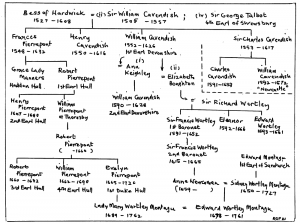 Bess of Hardwick = (ii) Sir William Cavendish ; (iv) Sir George Talbot
1527 - 1608
1505 - 1557
6th Earl of Shrewsbury
Frances
Pierrepont
Henry
Cavendish
1550 - 1616
William Cavendish
1552 - 1626
1st Earl Devonshire
Sir Charles Cavendish
1553 - 1617
Grace Lady
Manners
Haddon Hall
Robert
Pierrepont
1st Earl Hull
(i)
Ann
Keighley
(ii)
Elizabeth
Boughton
=
Sir Richard Wortley
Charles
Cavendish
William
Cavendish
"Newcastle"
William Cavendish
1590 - 1628
2nd Earl Devonshire
Henry
Pierrepont
2nd Earl Hull
William
Pierrepont
of Thoresby
Sir Francis Wortley
1st Baronet
Eleanor
Edward
Wortley
Robert
Pierrepont
Sir Francis Wortley
2nd Baronet
Edward Montagu
1st Earl of Sandwich
Robert
Pierrepont
3rd Earl Hull
William
Pierrepont
4th Earl Hull
Evelyn
Pierrepont
1st Duke Hull
Anne Newcomen = Sidney Wortley Montagu
1650 - 1727
Lady Mary Wortley Montagu = Edward Wortley Montagu
1689 - 1762
1678 - 1761